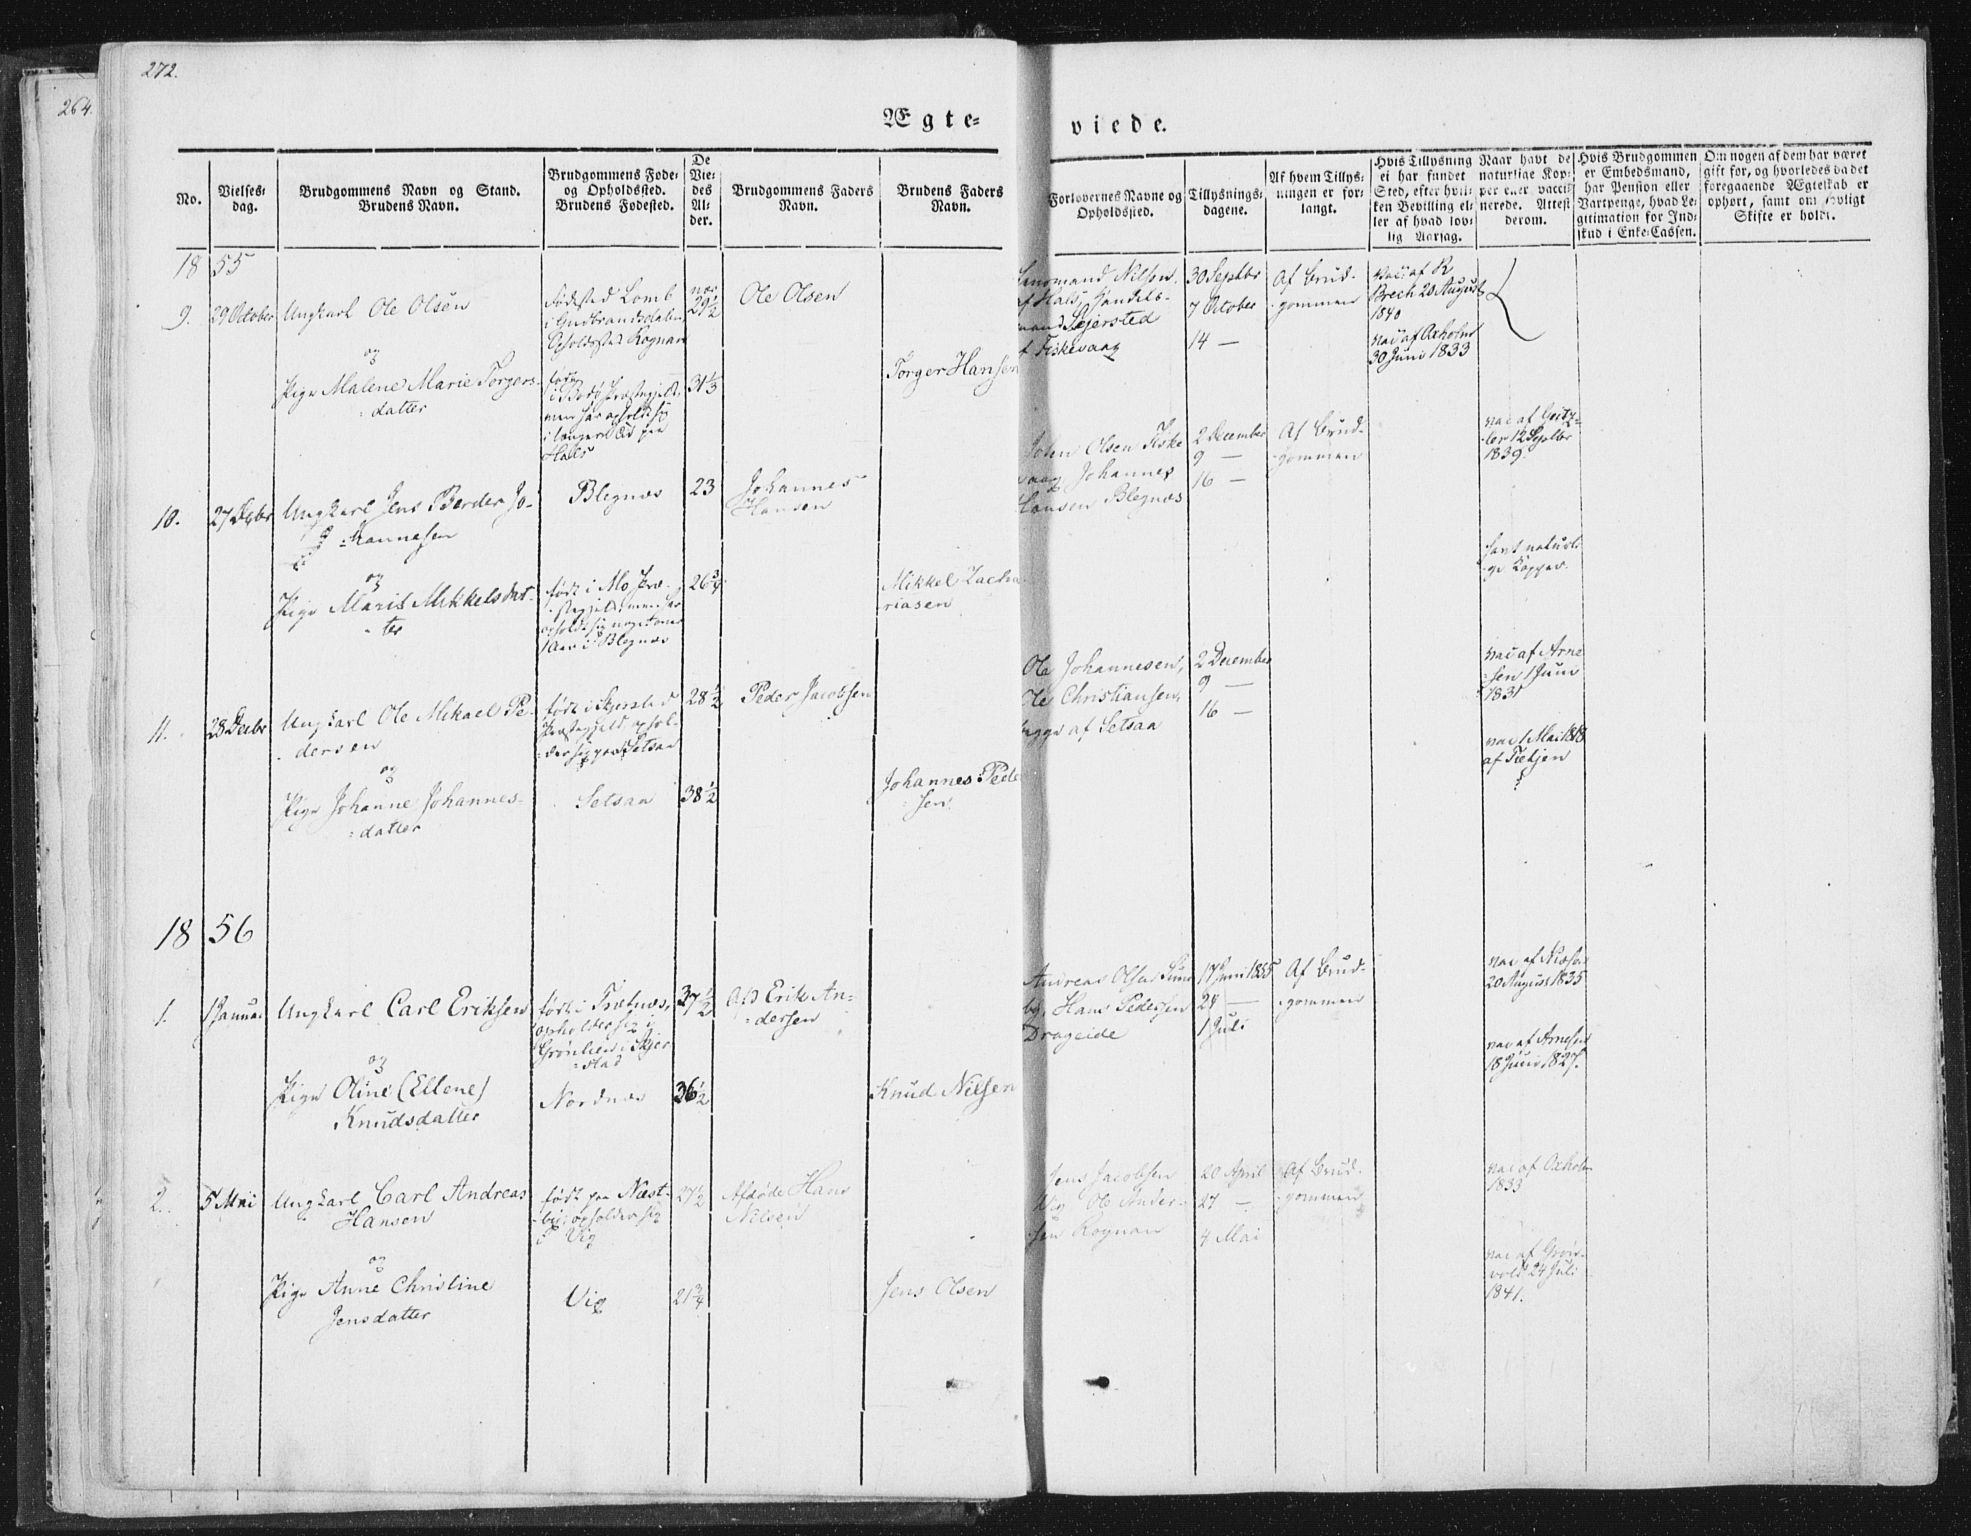 272.
264.
Ægte=
viede.
No.
Vielses-
dag.
Brudgommens Navn og Stand.
Brudens Navn.
Brudgommens Føde-
og Opholdssted.
Brudens Fødested.
De
Vie-
des
Al-
der.
Brudgommens Faders
Navn.
Brudens Faders
Navn.
Forlovernes Navne og
Opholdssted.
Tillysnings-
dagene.
Af hvem Tillys-
ningen er for-
langt.
Hvis Tillysning
ei har fundet
Sted, efter hvil-
ken Bevilling el-
ler af hvad lov-
lig Aarsag.
Naar havt de
naturlige Kop-
per eller vacci-
nerede. Attest
derom.
Hvis Brudgommen
er Embedsmand,
har Pension eller
Vartpenge, hvad Le-
gitimation for Ind-
skud i Enke-Cassen.
Om nogen af dem har været
gift før, og hvorledes da det
foregaaende Ægteskab er
ophørt, samt om lovligt
Skifte er holdt.
18 55
9.
29 October
Ungkarl Ole Olsen
og
Pige Malene Marie Torgers-
datter
Fødested Lomb
i Gudbrandsdalen
Opholdssted Rognan
født
i Bodø Præstegjeld,
men har opholdt sig
i længere Tid paa
Hals
29½
31⅓
Ole Olsen
Torger Hansen
Nilsen
af Hals, Handels-
mand Sejersted
af Fiskevaag
30 Septbr
7 October
14 —
Af Brud-
gommen
vac: af R
Brech 20 August
1840
vac: af Oxholm
30 Juni 1833
10.
27 Decbr
Ungkarl Jens Berder Jo-
hannesen
og
Pige Marit Mikkelsdat-
ter
Blegnæs
født i Mo Præ-
stegjeld, men har
opholdt sig noget over
1 Aar i Blegnæs
23
26¾
Johannes
Hansen
Mikkel Zacha-
riasen
Olsen Fiske
vaag Johannes
Hansen Blegnæs
2 December
9 —
16 —
Af Brud-
gommen
vac af
12 Septbr
1839.
havt naturli-
ge Kopper.
11.
28 Decbr
Ungkarl Ole Mikael Pe-
dersen
og
Pige Johanne Johannes-
datter
født i Skjerstad
Præstegjeld, ophol-
der sig paa Setsaa
Setsaa
28½
38½
Peder Jacobsen
Johannes Peder-
sen
Ole Johannesen,
Ole Christiansen,
begge af Setsaa
2 December
9 —
16 —
vac af Arne
sen 1 Juni
1831
vac 1 Mai 1818
af Tietjen
18 56
1.
1 Januar
Ungkarl Carl Eriksen
og
Pige Oline (Ellene)
Knudsdatter
født i Trætnæs,
opholder sig i
Grønlien i Skjer-
stad
Nordnæs
37½
36½
Afd Erik An-
dersen
Knud Nielsen
Andreas Olsen Sund
by, Hans Pedersen
Drageide
17 Juni 1855
24 —
1 Juli
Af Brud-
gommen
vac af
20 August 1835
vac af Arnesen
18 Juni 1827.
2.
5 Mai
Ungkarl Carl Andreas
Hansen
og
Pige Anne Christine
Jensdatter
født paa Næst-
by, opholder sig
i Vig
Vig
27½
21¾
Afdøde Hans
Nilsen
Jens Olsen
Jens Jacobsen
Vig Ole Ander-
sen Rognan
20 April
27 —
4 Mai
Af Brud-
gommen
vac af Oxholm
1833
vac af Grøn-
vold 24 Juli
1841.